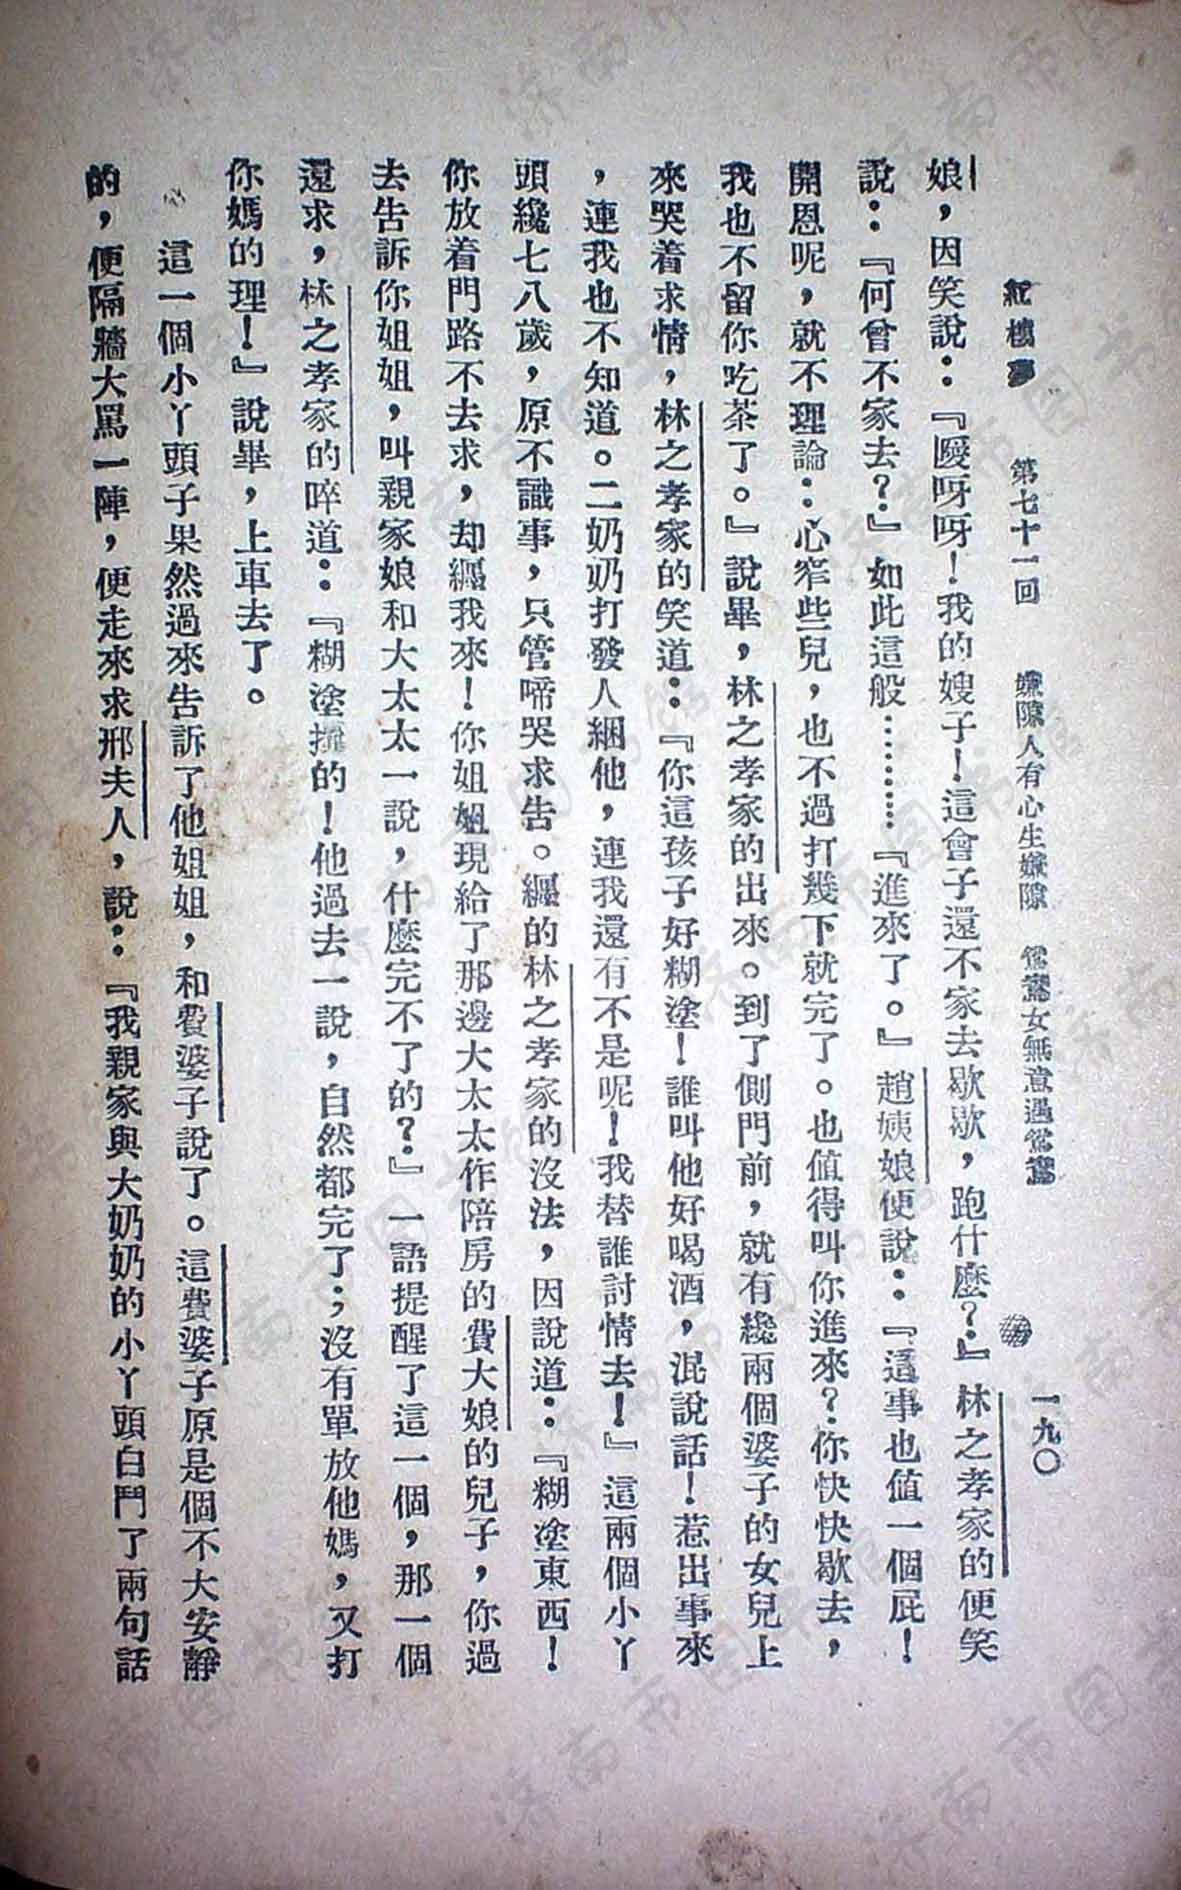 紅樓夢　第七十一回　嫌隙人有心生嫌隙　鴛鴦女無意遇鴛鴦　一九〇
娘，因笑說：『噯呀呀！我的嫂子！這會子還不家去歇歇，跑什麼？』林之孝家的便笑
說：『何曾不家去？』如此這般…………『進來了。』趙姨娘便說：『這事也值一個屁！
開恩呢，就不理論：心窄些兒，也不過打幾下就完了。也值得叫你進來？你快快歇去，
我也不留你吃茶了。』說畢，林之孝家的出來。到了側門前，就有纔兩個婆子的女兒上
來哭着求情，林之孝家的笑道：『你這孩子好糊塗！誰叫他好喝酒，混說話！惹出事來
，連我也不知道。二奶奶打發人綑他，連我還有不是呢！我替誰討情去！』這兩個小丫
頭纔七八歲，原不識事，只管啼哭求告。纏的林之孝家的沒法，因說道：『糊塗東西！
你放着門路不去求，却纏我來！你姐姐現給了那邊大太太作陪房的費大娘的兒子，你過
去告訴你姐姐，叫親家娘和大太太一說，什麼完不了的？』一語提醒了這一個，那一個
還求，林之孝家的啐道：『糊塗攮的！他過去一說，自然都完了；沒有單放他媽，又打
你媽的理！』說畢，上車去了。
這一個小丫頭子果然過來告訴了他姐姐，和費婆子說了。這費婆子原是個不大安靜
的，便隔牆大罵一陣，便走來求邢夫人，說：『我親家與大奶奶的小丫頭白鬥了兩句話